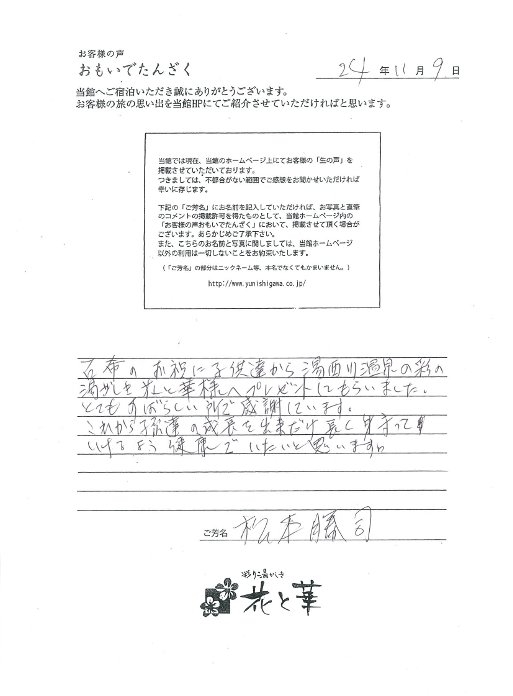 お客様の声
おもいでたんざく
24 年 11 月 9 日
当館へご宿泊いただき誠にありがとうございます。
お客様の旅の思い出を当館HPにてご紹介させていただければと思います。
当館では現在、当館のホームページ上にてお客様の「生の声」を
掲載させていただいております。
つきましては、不都合がない範囲でご感想をお聞かせいただければ
幸いに存じます。
下記の「ご芳名」にお名前を記入していただければ、お写真と直筆
のコメントの掲載許可を得たものとして、当館ホームページ内の
「お客様の声おもいでたんざく」において、掲載させて頂く場合が
ございます。あらかじめご了承下さい。
また、こちらのお名前と写真に関しましては、当館ホームページ
以外の利用は一切しないことをお約束いたします。
（「ご芳名」の部分はニックネーム等、本名でなくてもかまいません。）
http://www.yunishigama.co.jp/
古希のお祝に子供達から湯西川温泉の彩り
湯かしき花と華様へプレゼントしてもらいました。
とてもすばらしい所で感謝しています。
これから孫達の成長を出来だけ長く見守って
いけるよう健康でいたいと思います。
ご芳名 松本勝司
彩り湯かしき
花と華